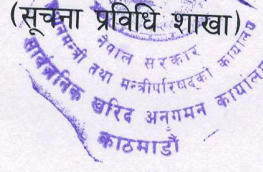 (सूचना प्रविधि शाखा)
नेपाल सरकार
तथा मन्त्रीपरिषद्को कार्यालय
सार्वजनिक खरिद अनुगमन कार्यालय
काठमाडौं